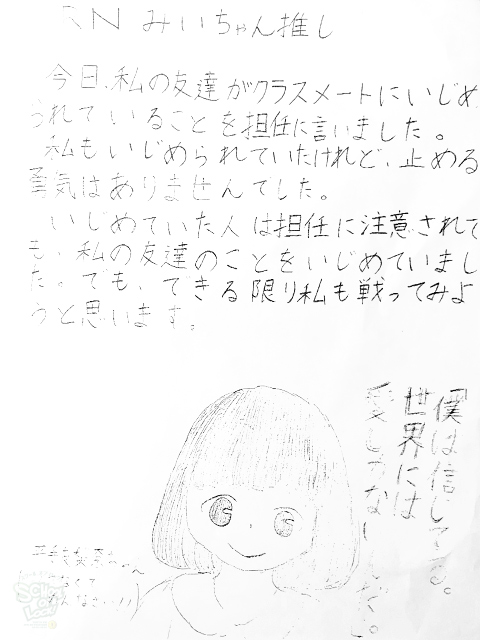 RN みいちゃん推し
今日、私の友達がクラスメートにいじめ
られていることを担任に言いました。
私もいじめられていたけれど、止める
勇気はありませんでした。
いじめていた人は担任に注意されて
も、私の友達のことをいじめていまし
た。でも、できる限り私も戦ってみよ
うと思います。
「僕は信じてる。
世界には
愛しかないんだ。
なくて
ごめんなさい!!)